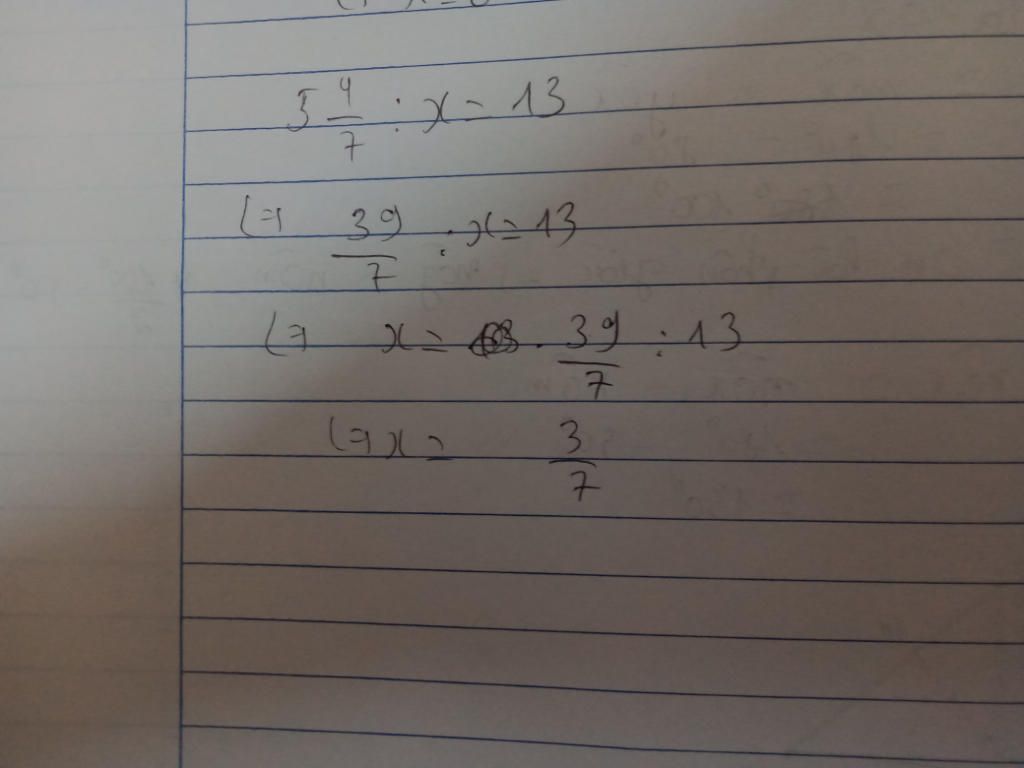 x = 0
5 4/7 : x = 13
(=) 39/7 : x = 13
(=) x = . 39/7 : 13
(=) x = 3/7